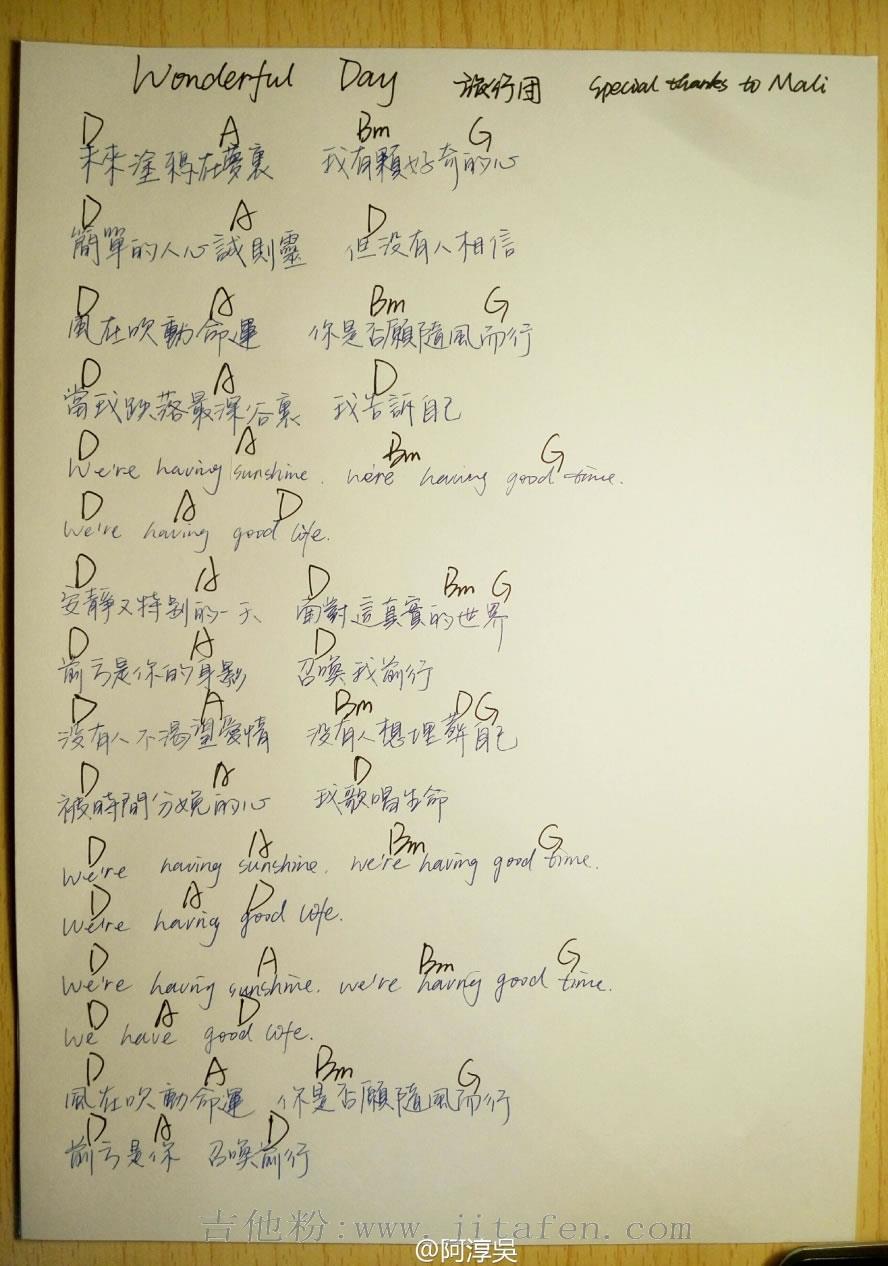 Wonderful Day 旅行团 Special thanks to Mali
D A Bm G
未來塗鴉在夢裏 我有顆好奇的心
D A D
簡單的人心誠則靈 但没有人相信
D A Bm G
風在吹動命運 你是否願隨風而行
D A D
當我跌落最深谷裏 我告訴自己
D A Bm G
We're having sunshine. we're having good time.
D A D
We're having good life.
D A D Bm G
安靜又特别的一天 面對這真實的世界
D A D
前方是你的身影 召喚我前行
D A Bm D G
没有人不渴望愛情 没有人想埋葬自己
D A D
被時間分娩的心 我歌唱生命
D A Bm G
We're having sunshine. we're having good time.
D A D
We're having good life.
D A Bm G
We're having sunshine. we're having good time.
D A D
We have good life.
D A Bm G
風在吹動命運 你是否願隨風而行
D A D
前方是你 召喚前行
吉他粉:www.jitafen.com
@阿淳吳